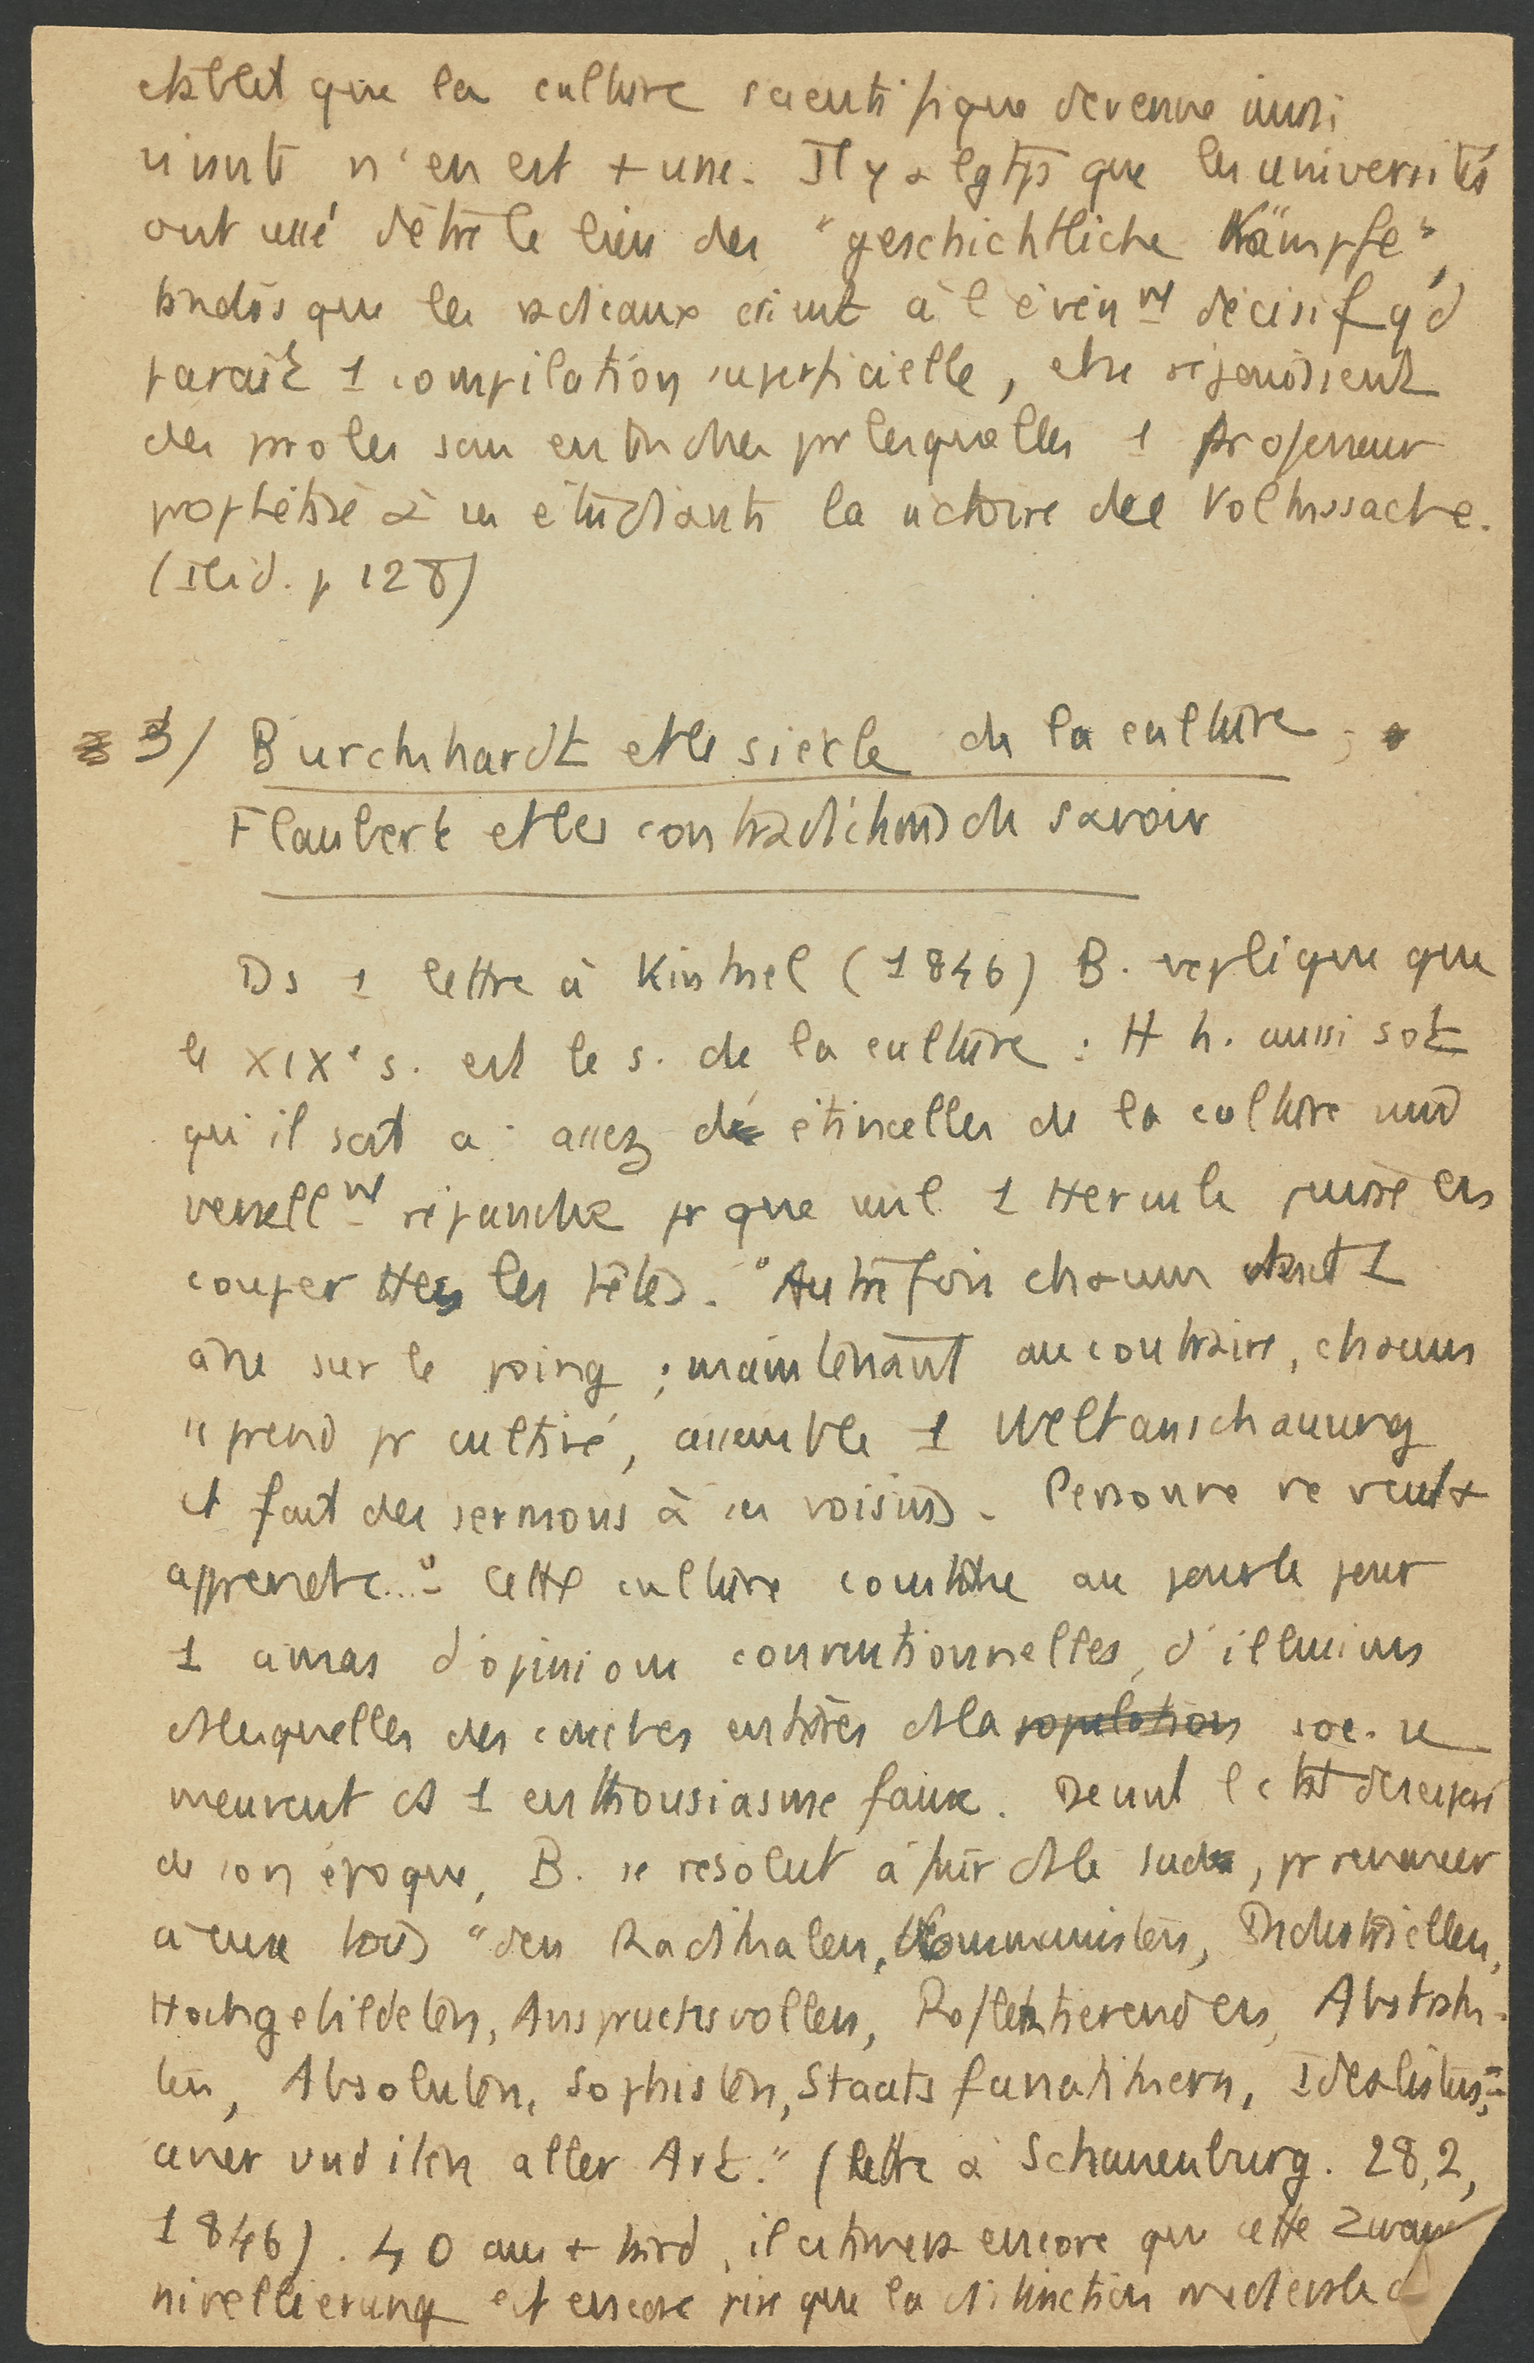 établit que la culture scientifique devenue aussi
n'en est + une. Il y a lgtps que les universités
ont cessé d'être le lieu des "geschichtliche Kämpfe",
tandis que les radicaux crient à l'évén^nt décisif qd
paraît 1 compilation superficielle, et se réjouissent
des proles sans entraches pr lesquelles 1 professeur
prophétise à ses étudiants la victoire der Volkssache.
(Ibid. p 128)
3/ Burckhardt et le siècle de la culture ;
Flaubert et les contradictions du savoir
Ds 1 lettre à Kinkel (1846) B. réplique que
le XIXe s. est le s. de la culture : H h. aussi sot
qu'il soit a assez étincelles de la culture uni
versell^nt répandue pr que seul 1 Hercule puisse en
couper ttes les têtes. "Autrefois chacun était 1
âne sur le poing ; maintenant au contraire, chacun
se prend pr cultivé, assemble 1 Weltanschauung
et fait des sermons à ses voisins. Personne ne veut +
apprendre..." Cette culture au jour le jour
1 amas d'opinions conventionnelles, d'illusions
desquelles des couches entières de la population soc. se
meuvent ds 1 enthousiasme faux. Devant l'
de son époque, B. se résolut à fuir ds le sud, pr renoncer
à eux tous "den Radikalen, Kommunisten, Industriellen,
Hochgebildeten, Anspruchsvollen, Reflektierenden, Abstrak-
ten, Absoluten, Sophisten, Staatsfanatikern, Idealisten,
aner und iten aller Art." (Lettre à Schauenburg. 28,2,
1846). 40 ans + tard, il estimera encore que cette Zwangs
nivellierung est encore pire que la distinction médiévale d